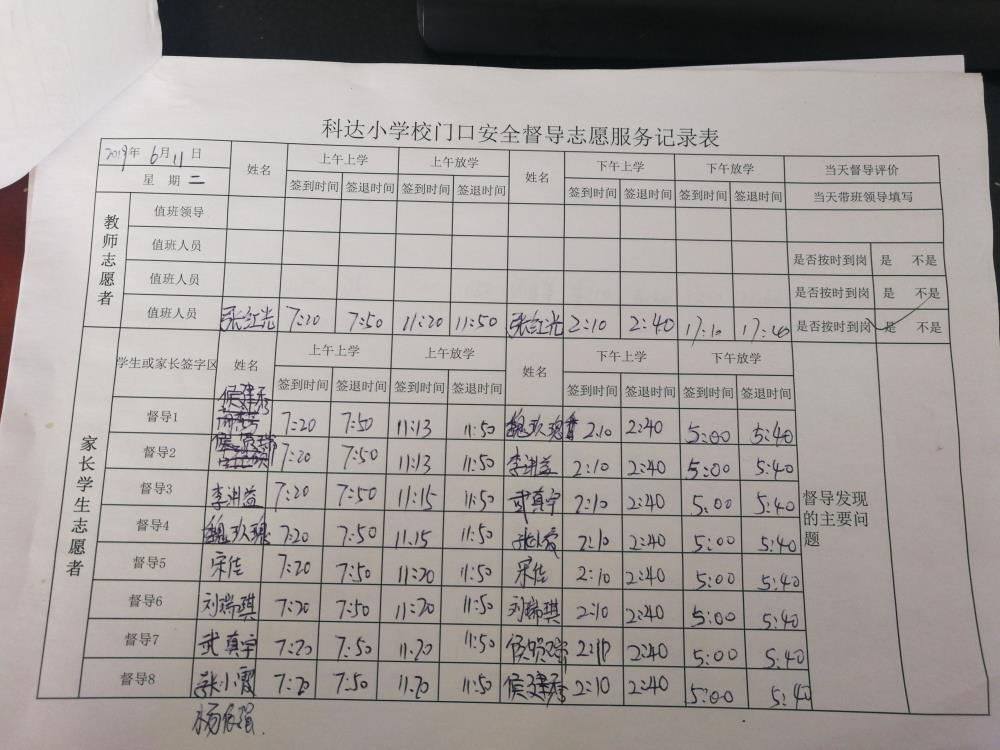 科达小学校门口安全督导志愿服务记录表
2019年 6月11日 姓名 上午上学 上午放学 姓名 下午上学 下午放学 当天督导评价
星期二 签到时间 签退时间 签到时间 签退时间 签到时间 签退时间 签到时间 签退时间 当天带班领导填写
教师志愿者
值班领导
值班人员 是否按时到岗 是 不是
值班人员 是否按时到岗 是 不是
值班人员 张红光 7:20 7:50 11:20 11:50 张红光 2:10 2:40 17:10 17:40 是否按时到岗 是 不是
家长学生志愿者
学生或家长签字区 姓名 上午上学 上午放学 姓名 下午上学 下午放学
签到时间 签退时间 签到时间 签退时间 签到时间 签退时间 签到时间 签退时间
督导1 侯建秀 7:20 7:50 11:13 11:50 魏玖瑰 2:10 2:40 5:00 5:40
督导2 7:20 7:50 11:13 11:50 李湘益 2:10 2:40 5:00 5:40
督导3 李湘益 7:20 7:50 11:15 11:50 武真宇 2:10 2:40 5:00 5:40
督导4 魏玖瑰 7:20 7:50 11:15 11:50 2:10 2:40 5:00 5:40
督导5 宋佳 7:20 7:50 11:20 11:50 宋佳 2:10 2:40 5:00 5:40
督导6 刘瑞琪 7:20 7:50 11:20 11:50 刘瑞琪 2:10 2:40 5:00 5:40
督导7 武真宇 7:20 7:50 11:20 11:50 2:10 2:40 5:00 5:40
督导8 张小霞 7:20 7:50 11:20 11:50 侯建秀 2:10 2:40 5:00 5:40
督导发现的主要问题